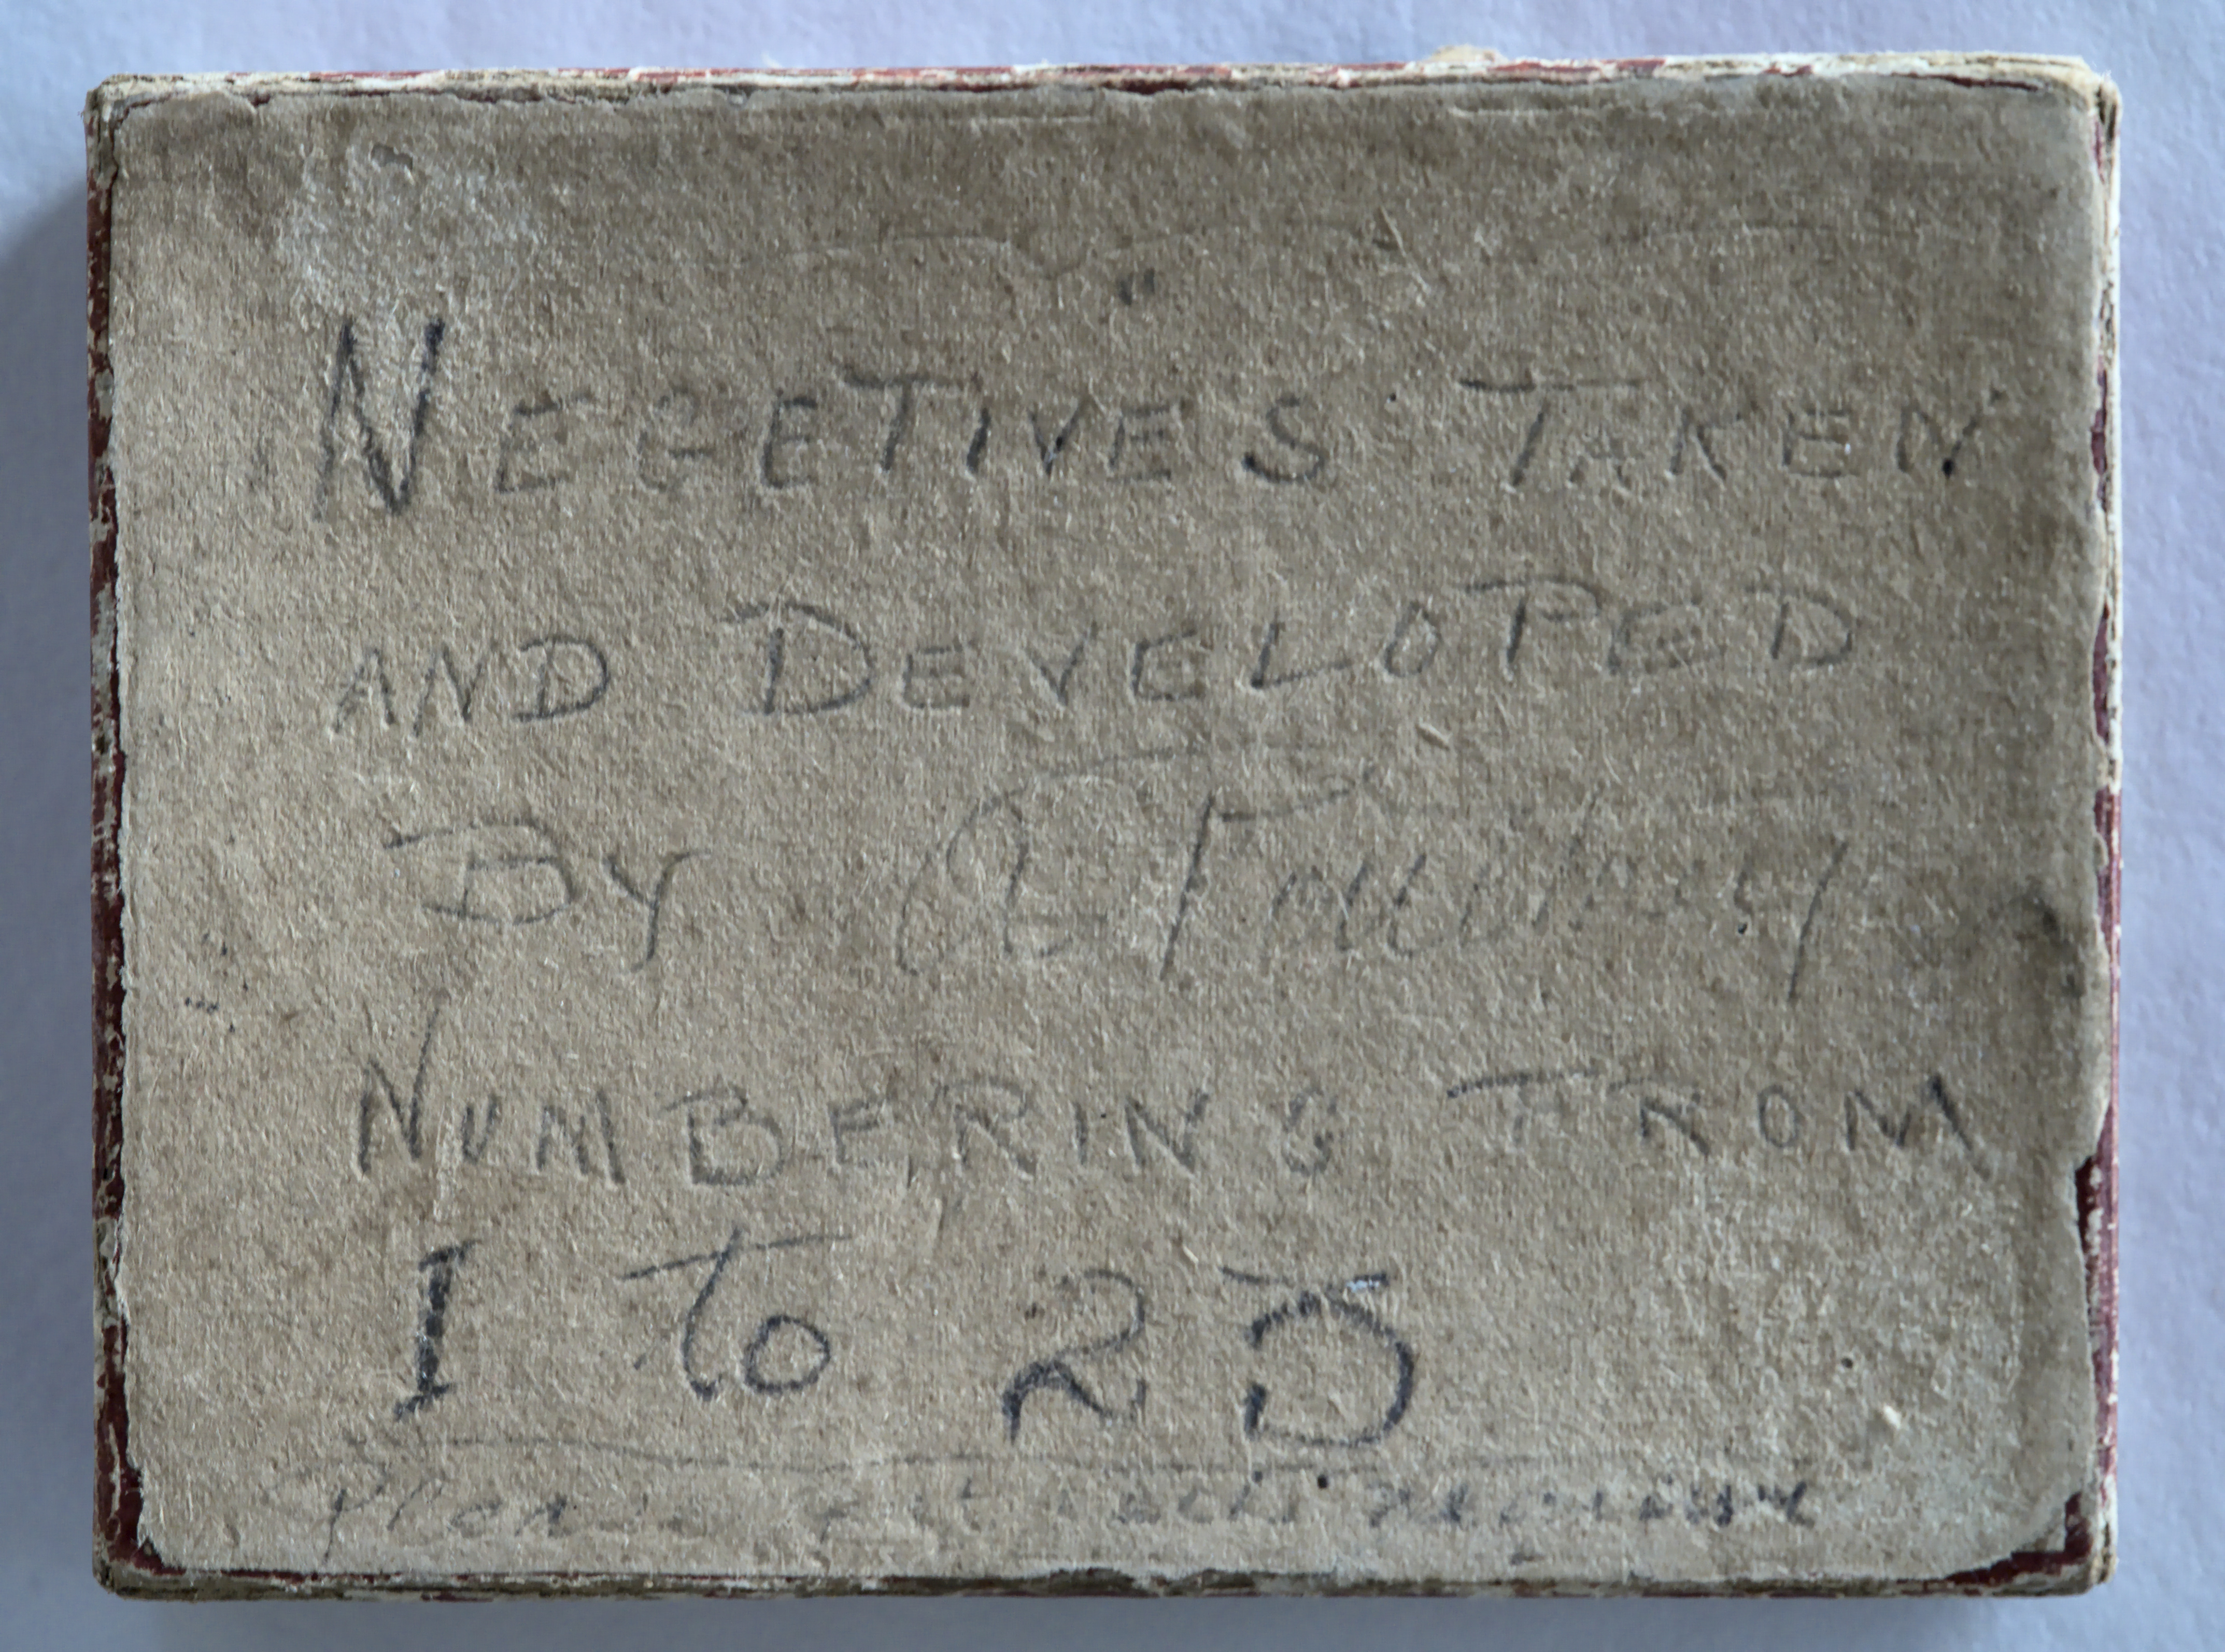 NEGETIVES TAKEN
AND DEVELOPED
By
NUMBERING FROM
1 to 25
Please